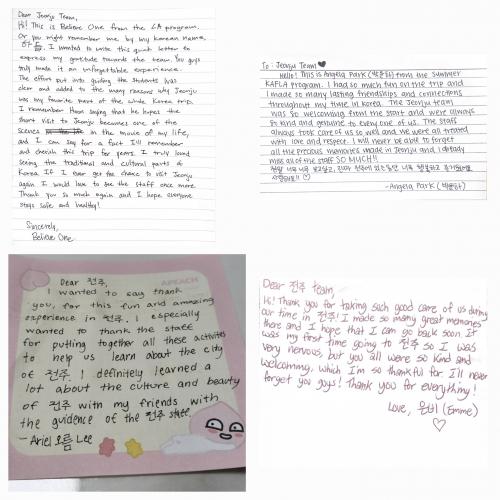 Dear Jeonju Team,
Hi! This is Believe One from the LA program.
Or you might remember me by my Korean name,
I wanted to write this quick letter to
express my gratitude towards the team. You guys
truly made it an unforgettable experience.
The effort put into guiding the students was
clear and added to the many reasons why Jeonju
was my favorite part of the whole Korea trip.
I remember them saying that he hopes the
short visit to Jeonju becomes one of the
scenes in the movie of my life,
and I can say for a fact I'll remember
and cherish this trip for years. I truly loved
seeing the traditional and cultural parts of
Korea. If I ever get the chance to visit Jeonju
again I would love to see the staff once more.
Thank you so much again and I hope everyone
stays safe and healthy!
Sincerely,
Believe One
To: Jeonju Team ♥
Hello! This is Angela Park (박윤하) from the summer
KAFLA Program. I had so much fun on the trip and
I made so many lasting friendships and connections
throughout my time in Korea. The Jeonju team
was so welcoming from the start and were always
so kind and genuine to every one of us. The staff
always took care of us so well and we were all treated
with love and respect. I will never be able to forget
all the precious memories made in Jeonju and I already
miss all of the staff SO MUCH!!
너무 너무
♡
-Angela Park (박윤하)
Dear 전주,
I wanted to say thank
you, for this fun and amazing
experience in 전주. I especially
wanted to thank the staff
for putting together all these activities
to help us learn about the city
of 전주. I definitely learned a
lot about the culture and beauty
of 전주 with my friends with
the guidence of the 전주 staff.
-Ariel 오름 Lee
APEACH
Dear 전주 team,
Hi! Thank you for taking such good care of us during
our time in 전주! I made so many great memories
there and I hope that I can go back soon. It
was my first time going to 전주 so I was
very nervous, but you all were so kind and
welcoming, which I'm so thankful for. I'll never
forget you guys! Thank you for everything!
Love, 은비 (Emme)
♡